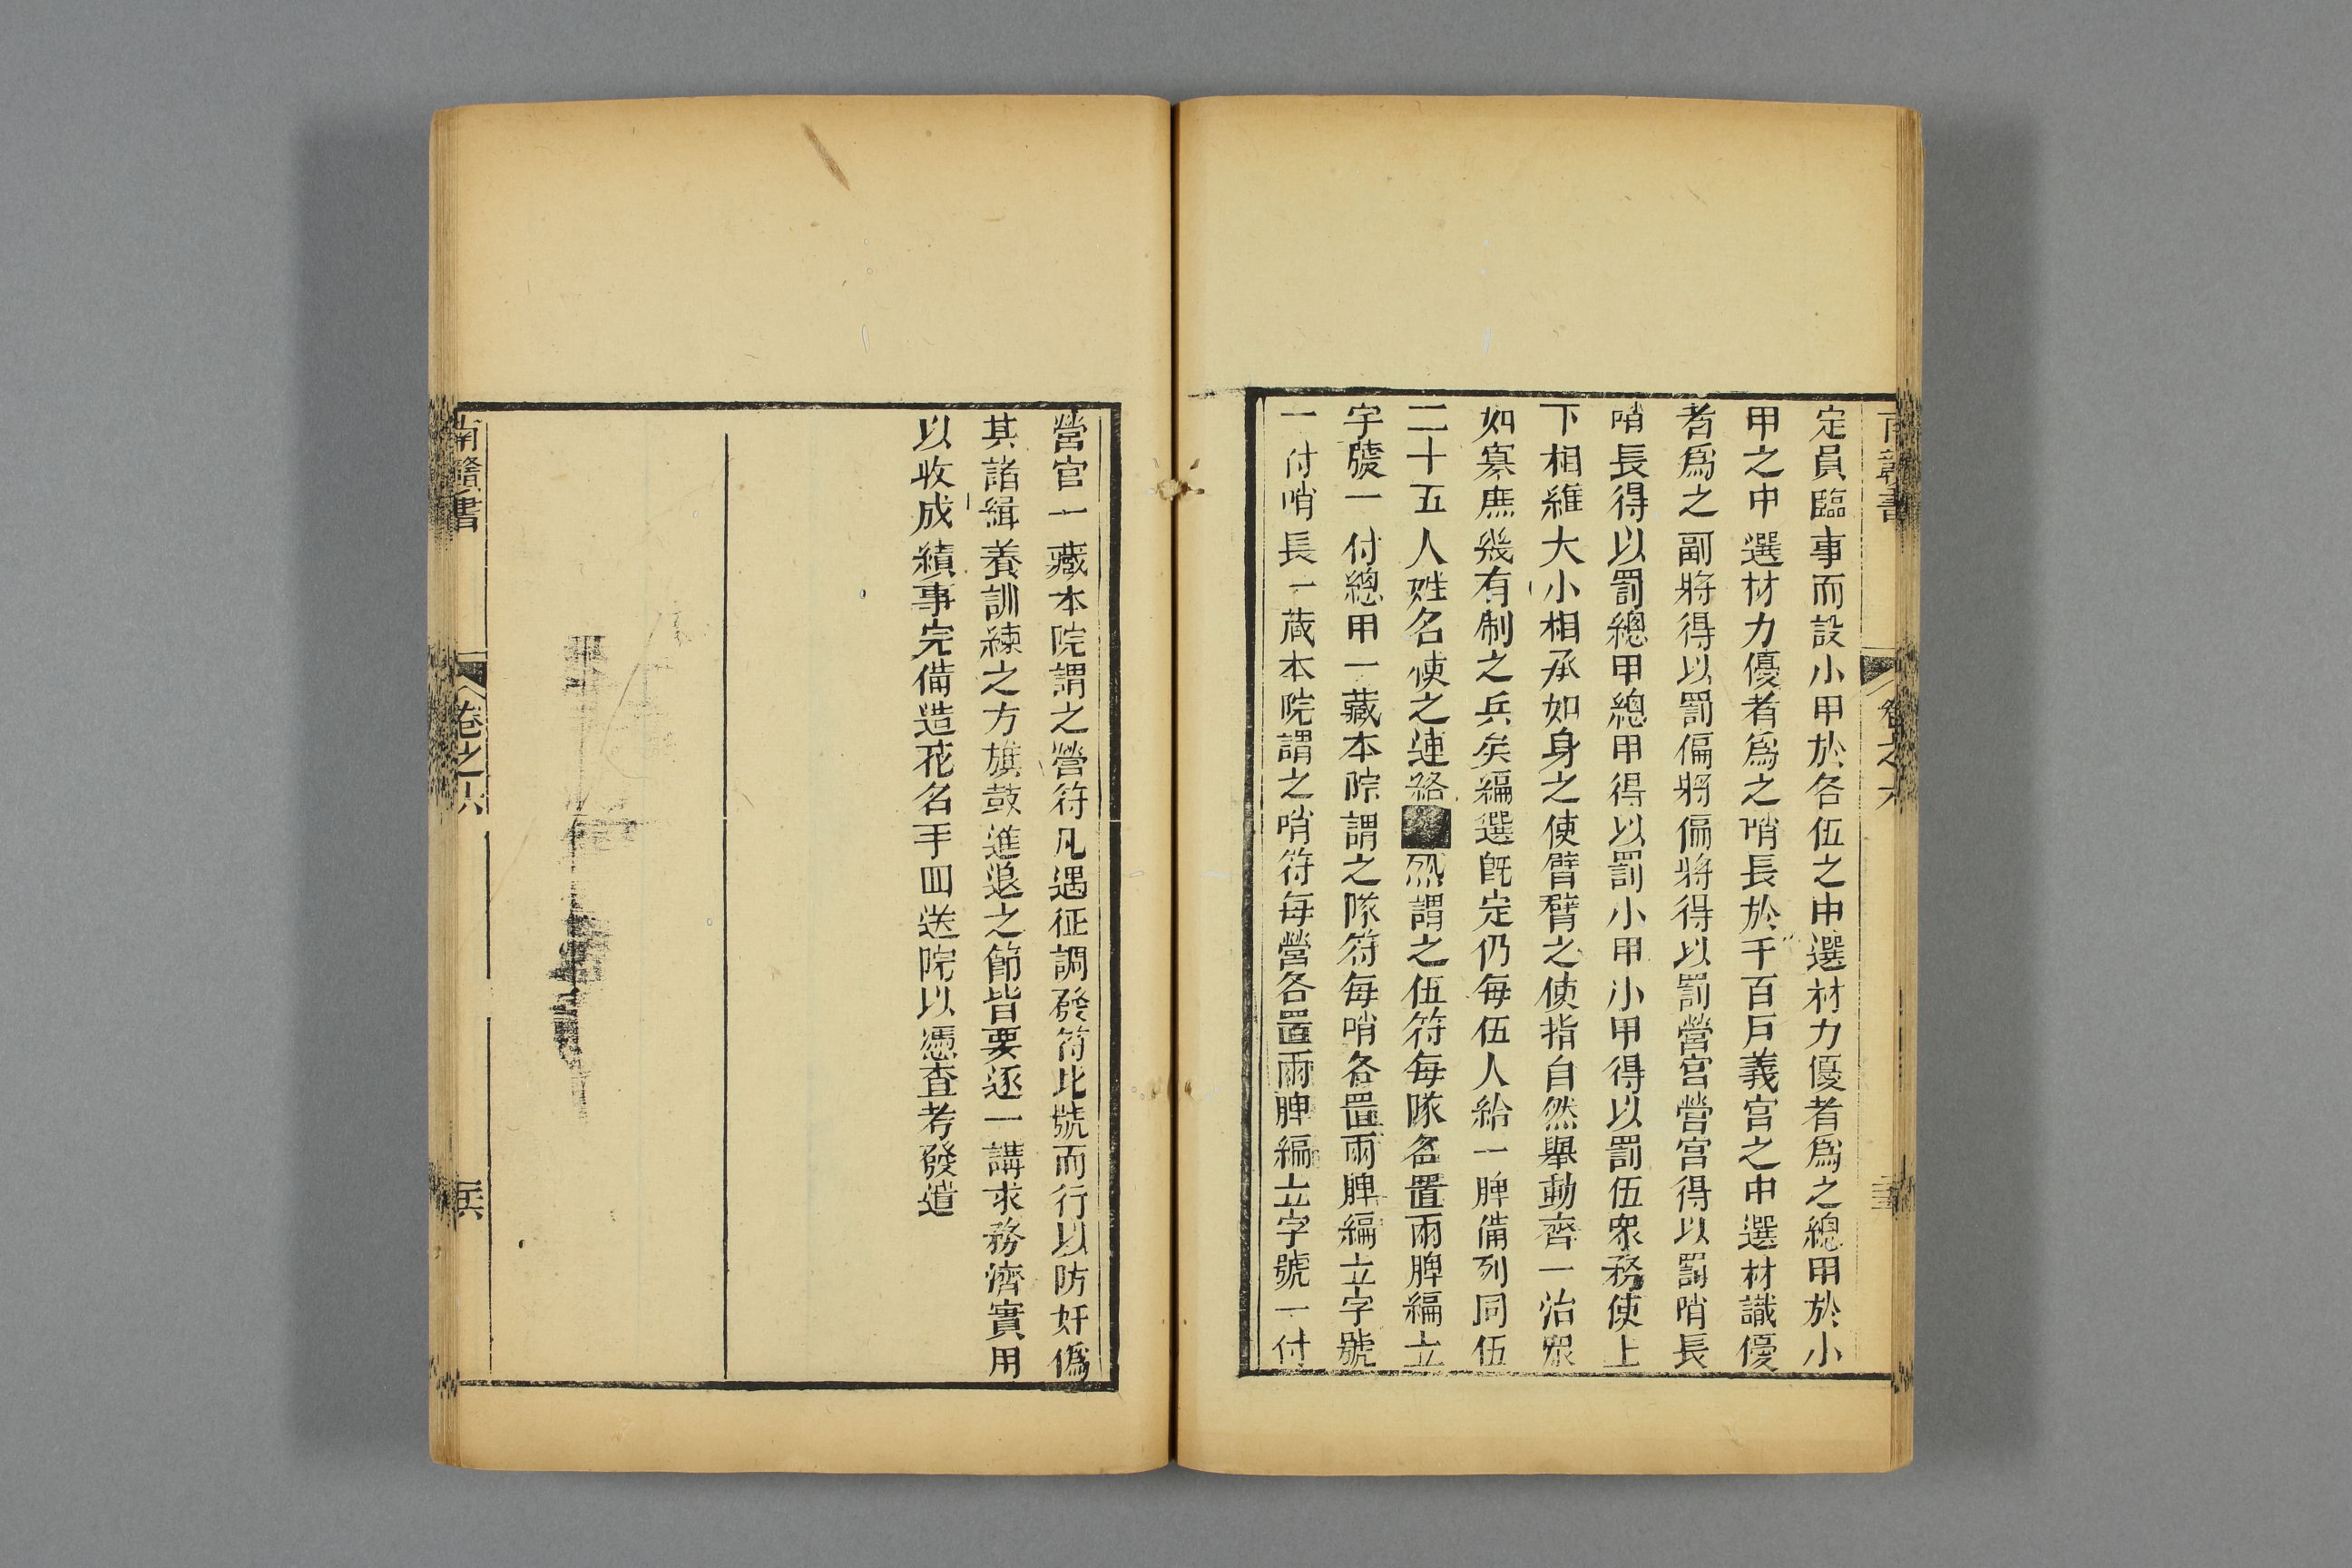 定員臨事而設小甲於各伍之中選材力優者爲之總甲於小
甲之中選材力優者爲之哨長於千百戶義官之中選材識優
者爲之副將得以罰偏將偏將得以罰營官營官得以罰哨長
哨長得以罰總甲總甲得以罰小甲小甲得以罰伍眾務使上
下相維大小相承如身之使臂臂之使指自然舉動齊一治眾
如寡庶幾有制之兵矣編選既定仍每伍人給一牌備列同伍
二十五人姓名使之連絡 謂之伍符每隊各置兩牌編立
字號一付總甲一藏本院謂之隊符每哨各置兩牌編立字號
一付哨長一藏本院謂之哨符每營各置兩牌編立字號一付
營官一藏本院謂之營符凡遇征調發符比號而行以防奸僞
其諸緝養訓練之方旗鼓進退之節皆要逐一講求務濟實用
以收成績事完備造花名手冊送院以憑查考發遣
南贛書
卷之六
兵